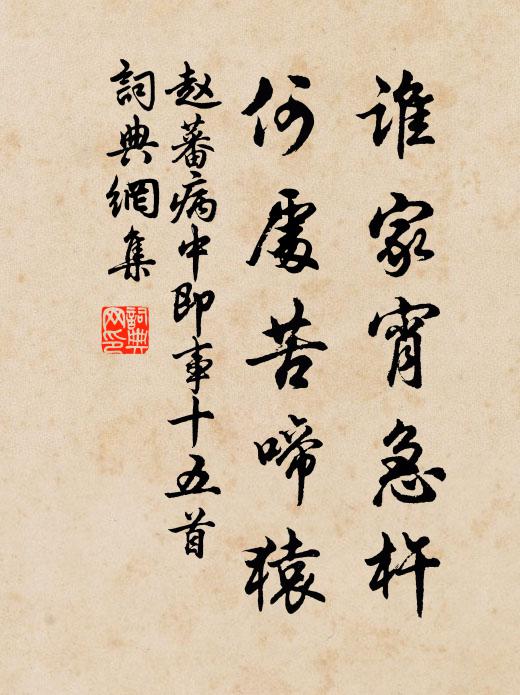 誰家宵急杵
何處苦啼猿
赵蕃病中即事十五首
詞典網集
詞典网印